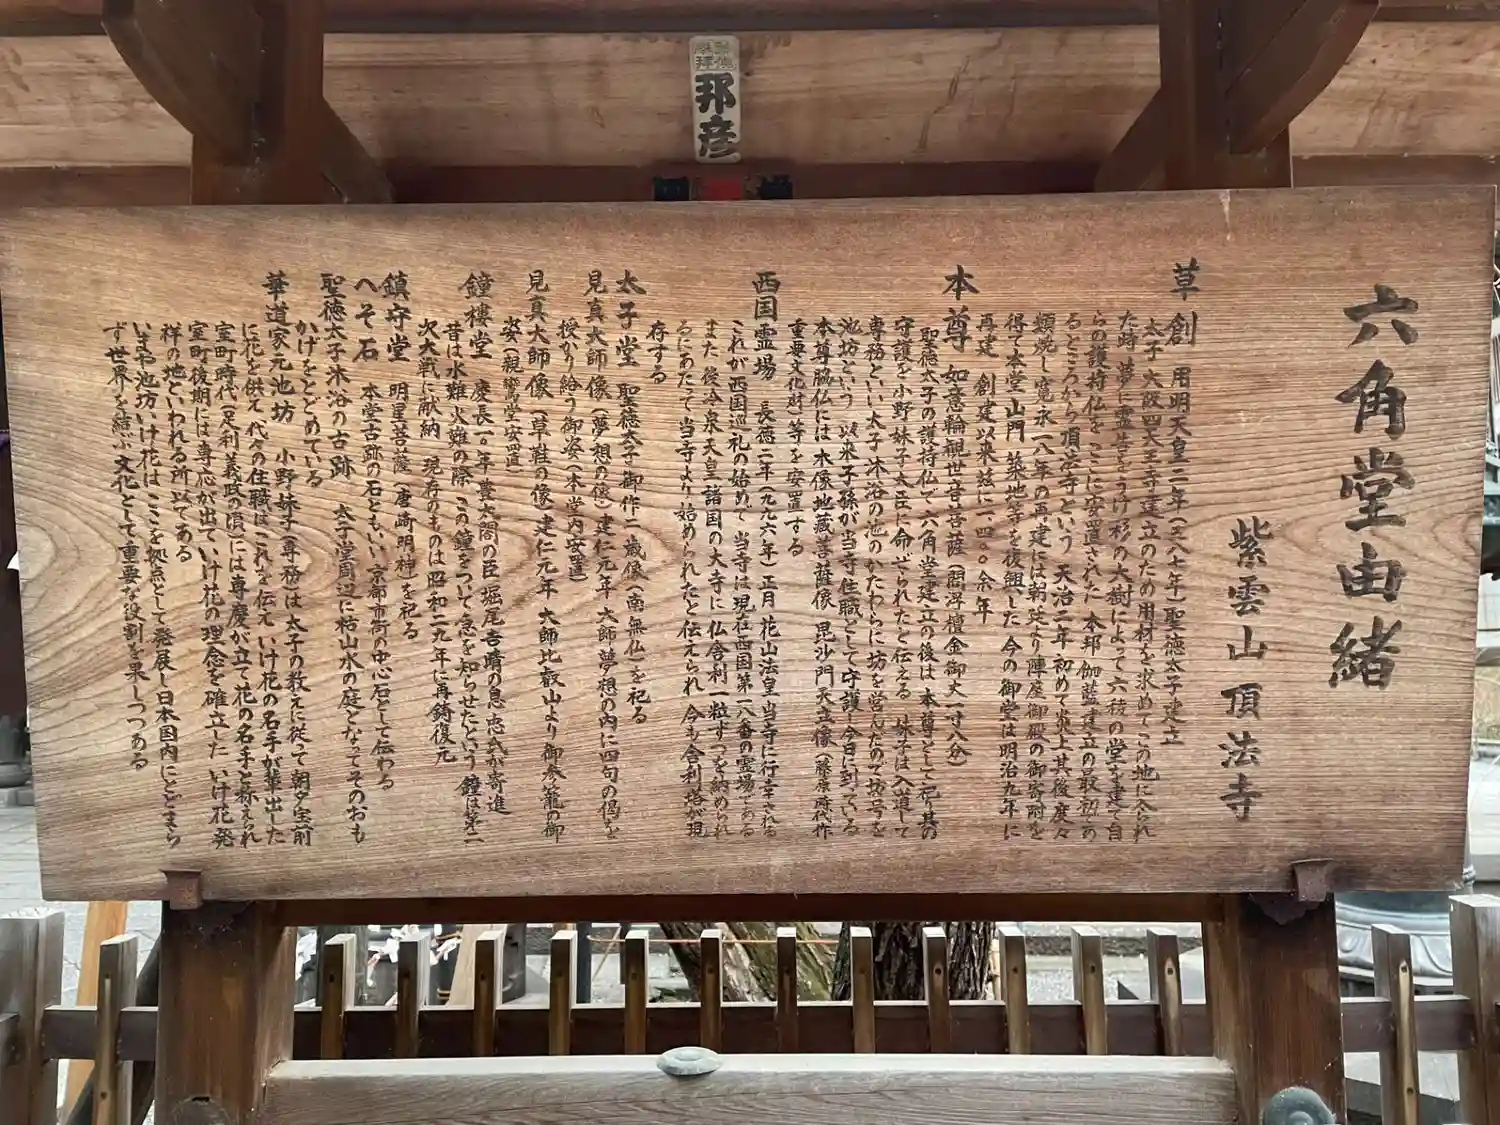 邦彦
六角堂由緒
紫雲山 頂法寺
草創 用明天皇二年(五八七年)聖徳太子建立
太子 大阪四天王寺建立のための用材を求めてこの地に入られ
た時 夢に霊告をうけ 杉の大樹によって六稜の堂を建て自
らの護持仏をここに安置された 本邦伽藍建立の最初の
るところから 頂法寺という 天治二年 初めて炎上 其後度々
類焼し 寛永一八年の再建には 朝廷より陣屋御殿の御寄附を
得て 本堂 山門 築地等を復興した 今の御堂は明治九年に
再建 創建以来茲に一四〇〇余年
本尊 如意輪観世音菩薩(閻浮檀金御丈一寸八分)
聖徳太子の護持仏で 六角堂建立の後は 本尊として祀り其の
守護を小野妹子大臣に命ぜられたと伝える 妹子は入道して
専務といい 太子沐浴の池のかたわらに坊を営んだので 坊号を
池坊という 以来子孫が当寺住職として守護し今日に到っている
本尊脇仏には 木像地蔵菩薩像 毘沙門天立像(藤原時代作
重要文化財)等を安置する
西国霊場 長徳二年(九九六年)正月 花山法皇 当寺に行幸される
これが西国巡礼の始めで 当寺は現在西国第一八番の霊場である
また 後冷泉天皇 諸国の大寺に 仏舎利一粒ずつを納められ
るにあたって 当寺より始められたと伝えられ 今も舎利塔が現
存する
太子堂 聖徳太子御作二歳像(南無仏)を祀る
見真大師像(夢想の像)建仁元年 大師夢想の内に四句の偈を
授かり給う御姿(本堂内安置)
見真大師像(草鞋の像)建仁元年 大師比叡山より御参籠の御
姿(親鸞堂安置)
鐘樓堂 慶長一〇年 豊太閤の臣 堀尾吉晴の息 忠氏が寄進
昔は水難 火難の際 この鐘をついて急を知らせたという 鐘は第二
次大戦に献納 現存のものは昭和二九年に再鋳復元
鎮守堂 明星菩薩(唐崎明神)を祀る
へそ石 本堂古跡の石ともいい 京都市街の中心石として伝わる
聖徳太子沐浴の古跡 太子堂周辺に枯山水の庭となってそのおも
かげをとどめている
華道家元池坊 小野妹子(専務)は太子の教えに従って 朝夕宝前
に花を供え 代々の住職はこれを伝え いけ花の名手が輩出した
室町時代(足利義政の頃)には専慶が立て花の名手と称えられ
室町後期には専応が出て いけ花の理念を確立した いけ花発
祥の地といわれる所以である
いまや池坊いけ花は ここを拠点として発展し 日本国内にとどまら
ず 世界を結ぶ文化として重要な役割を果しつつある